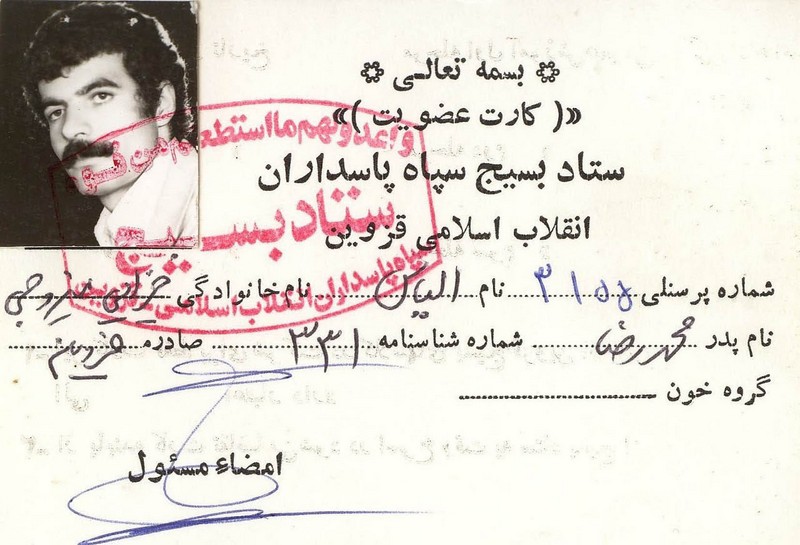 بسمه تعالی
«( کارت عضویت )»
ستاد بسیج سپاه پاسداران
انقلاب اسلامی قزوین
شماره پرسنلی نام الیاس نام خانوادگی
نام پدر محمدرضا شماره شناسنامه ۳۳۱ صادره قزوین
گروه خون
امضاء مسئول
و اعدوا لهم ما استطعتم من قوة
ستاد بسیج
سپاه پاسداران انقلاب اسلامی